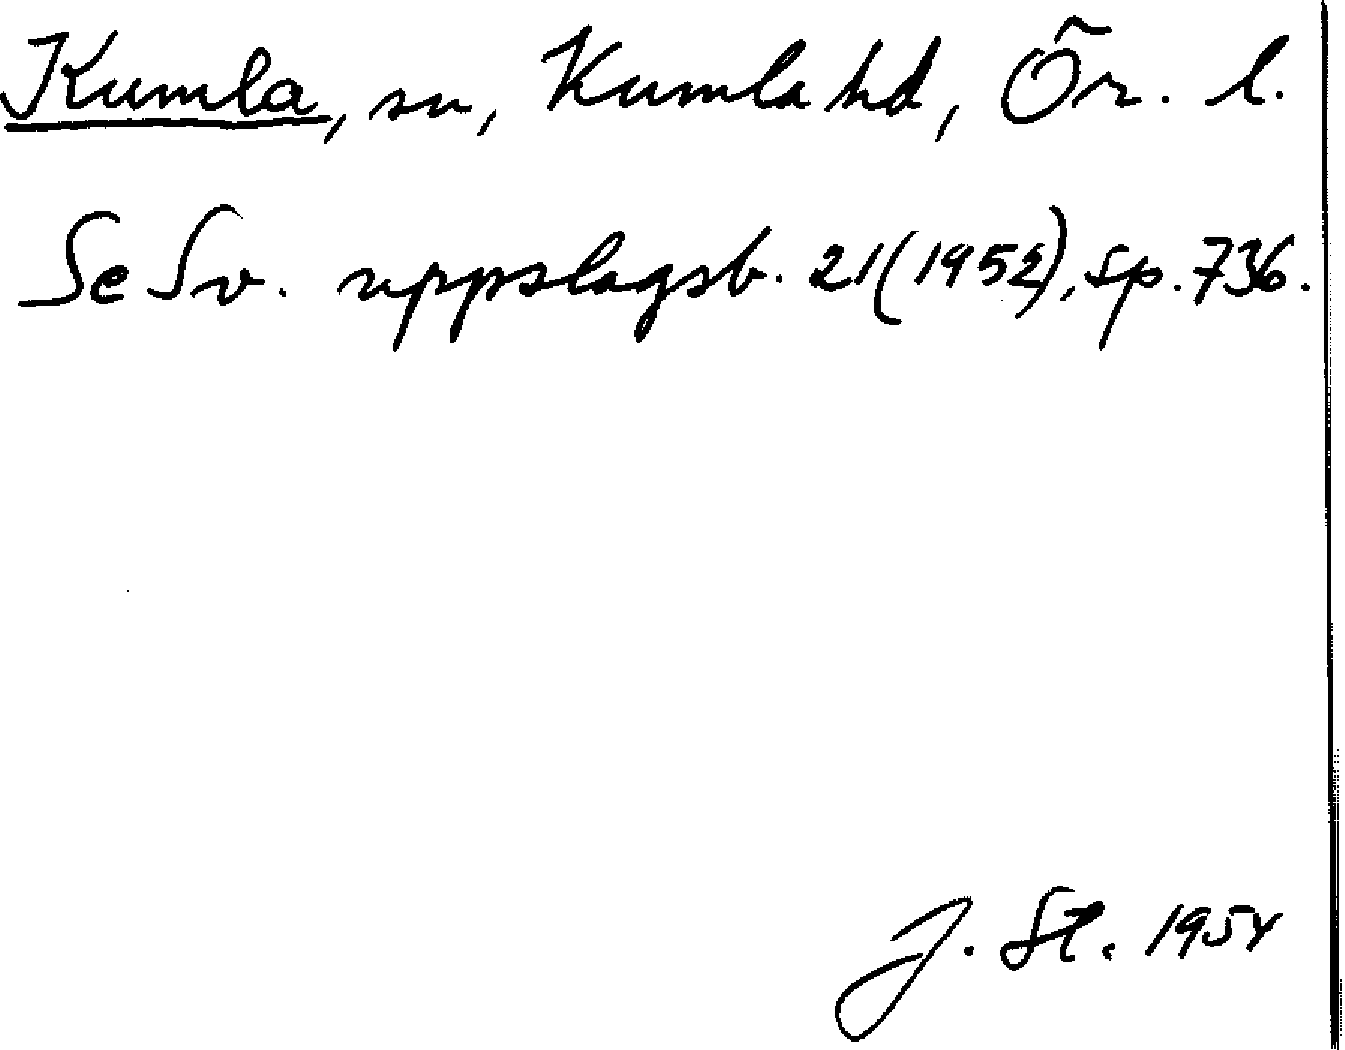 Kumla, sn, Kumla hd, Ör. l.
Se Sv. uppslagsb. 21 (1952), sp. 736.
J. St. 1954